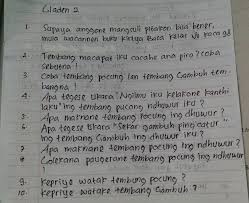 Gladen 2
1. Supaya anggone mangsuli pitakon bisa bener,
mula wacanen buku Kirtya Basa kelas VII kaca 98
2. Tembang macapat iku cacahe ana pira? coba
sebutna!
3. Coba tembang pocung lan tembang Gambuh tem-
bangna!
4. Apa tegese ukara "Ngelmu iku kelakone kanthi
laku" ing tembang pucung ndhuwur iku?
5. Apa maknane tembang pocung ing dhuwur?
6. Apa tegese ukara "Sekar gambuh ping catur"
ing tembang Gambuh ing dhuwur iku?
7. Apa maknane tembang pocung ing ndhuwur?
8. paugerane tembang pocung ing ndhuwur
!
9. Kepriye watak tembang pocung?
10. Kepriye watake tembang Gambuh?